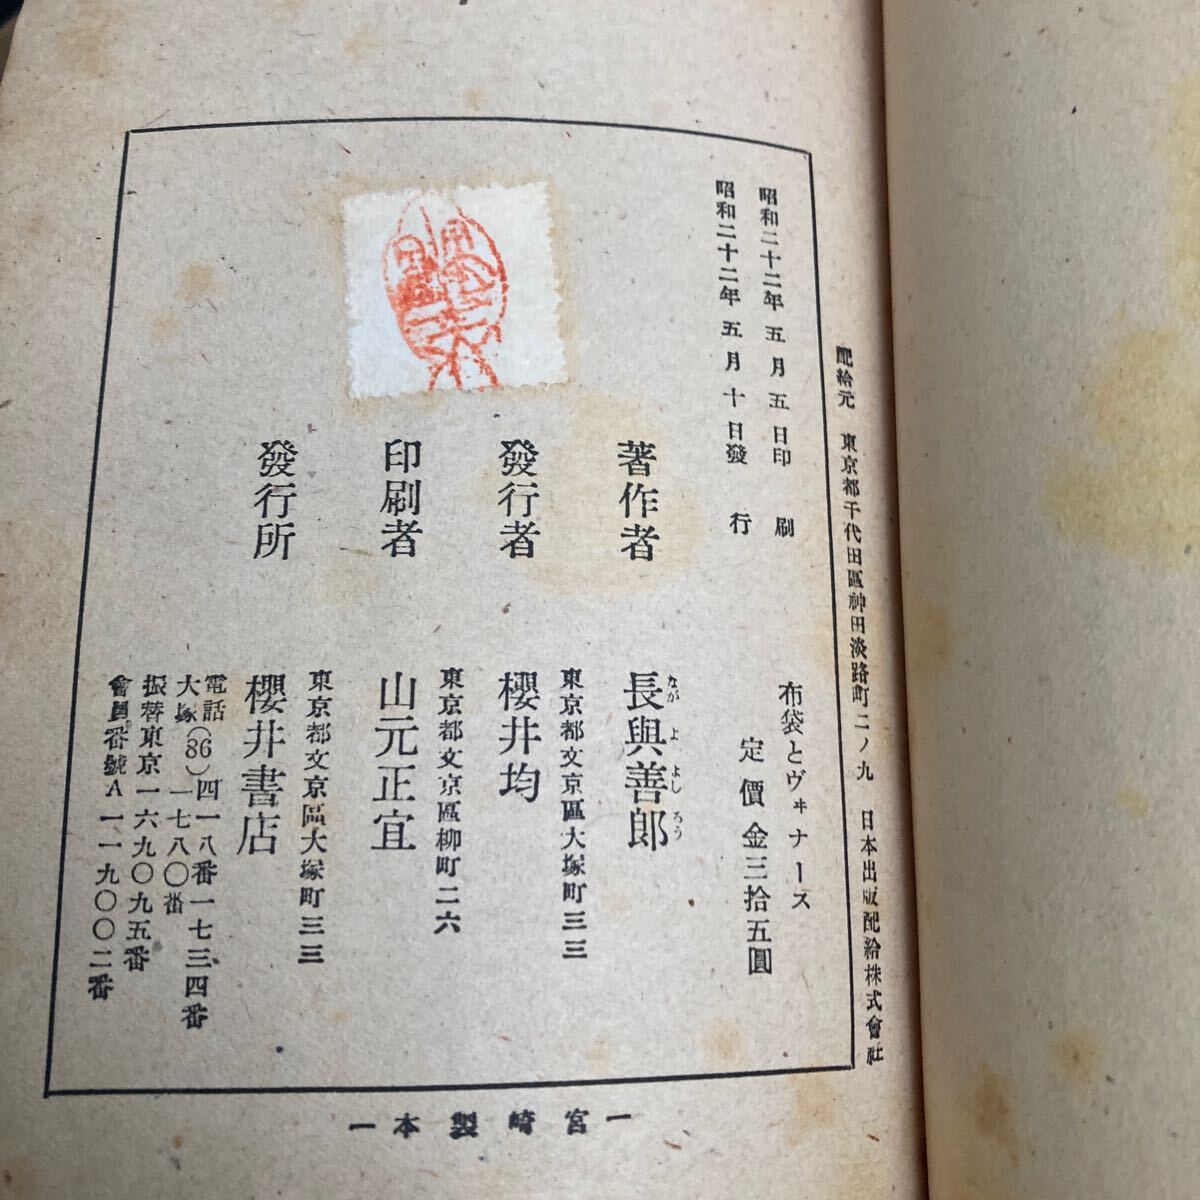 配給元　東京都千代田區神田淡路町二ノ九　日本出版配給株式會社
昭和二十二年五月五日印刷
昭和二十二年五月十日發行
布袋とヴヰナース
定價金三拾五圓
著作者　長與善郎
なが　よ　よし　ろう
東京都文京區大塚町三三
發行者　櫻井均
東京都文京區柳町二六
印刷者　山元正宜
東京都文京區大塚町三三
發行所　櫻井書店
電話(86)四一八番一七三四番
大塚　一七八〇番
振替東京一六九〇九五番
會員番號A一一九〇〇二番
ー宮崎製本ー